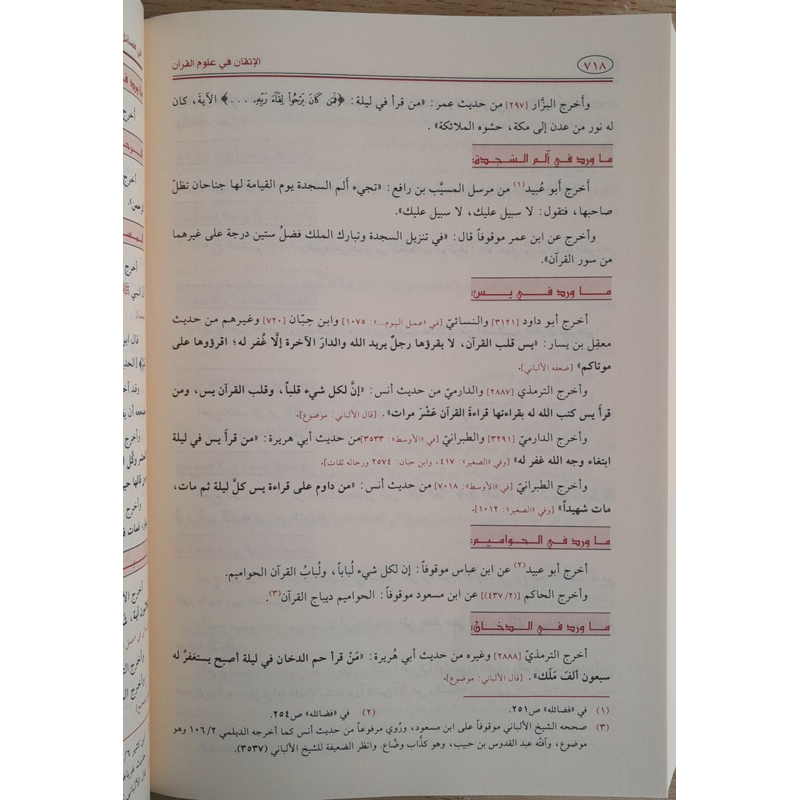 ٧١٨ الإتقان في علوم القرآن
وأَخرج البزَّار [٢٩٧] من حديث عمر: «من قرأ في ليلة: ﴿فَمَن كَانَ يَرْجُوا۟ لِقَآءَ رَبِّهِۦ ...﴾ الآيةَ، كان
له نور من عدن إلى مكة، حشوه الملائكة».
ما ورد في ألم السجدة:
أَخرج أَبو عُبيد(١) من مرسل المسيَّب بن رافع: «تجيء ألم السجدة يوم القيامة لها جناحان تظلّ
صاحبها، فتقول: لا سبيل عليك، لا سبيل عليك».
وأخرج عن ابن عمر موقوفاً قال: «في تنزيل السجدة وتبارك الملك فضلُ ستين درجة على غيرهما
من سور القرآن».
ما ورد في يس:
أخرج أبو داود [٣١٢١] والنسائيّ [في «عمل اليوم...»: ١٠٧٥] وابن حِبّان [٧٢٠] وغيرهم من حديث
معقِل بن يسار: «يس قلب القرآن، لا يقرؤها رجلٌ يريد الله والدارَ الآخرة إلَّا غُفر له؛ اقرؤوها على
موتاكم» [ضعفه الألباني].
وأخرج الترمذي [٢٨٨٧] والدارميّ من حديث أنس: «إنَّ لكل شيء قلباً، وقلب القرآن يس، ومن
قرأ يس كتب الله له بقراءتها قراءةَ القرآن عَشْرَ مرات». [قال الألباني: موضوع].
وأخرج الدارميّ [٣٢٩١] والطبرانيّ [في «الأوسط»: ٣٥٣٣]من حديث أبي هريرة: «من قرأ يس في ليلة
ابتغاء وجه الله غفر له» [وفي «الصغير»: ٤١٧، وابن حبان: ٢٥٧٤ ورجاله ثقات].
وأخرج الطبرانيّ [في «الأوسط»: ٧٠١٨ من حديث أنس: «من داوم على قراءة يس كلَّ ليلة ثم مات،
مات شهيداً» [وفي «الصغير»: ١٠١٢].
ما ورد في الحواميم:
أخرج أبو عبيد(٢) عن ابن عباس موقوفاً: إن لكل شيء لُباباً، ولُبابُ القرآن الحواميم.
وأخرج الحاكم [(٤٣٧/٢)] عن ابن مسعود موقوفاً: الحواميم ديباج القرآن(٣).
ما ورد في الدخان:
أخرج الترمذيّ [٢٨٨٨] وغيره من حديث أبي هُريرة: «مَنْ قرأ حم الدخان في ليلة أصبح يستغفرُ له
سبعون ألفَ مَلَك». [قال الألباني: موضوع].
(١) في «فضائله» ص٢٥١. (٢) في «فضائله» ص٢٥٤.
(٣) صححه الشيخ الألباني موقوفاً على ابن مسعود، ورُوي مرفوعاً من حديث أنس كما أخرجه الديلمي ١٠٦/٢ وهو
موضوع، وآفته عبد القدوس بن حبيب، وهو كذَّاب وضَّاع. وانظر الضعيفة للشيخ الألباني (٣٥٣٧).